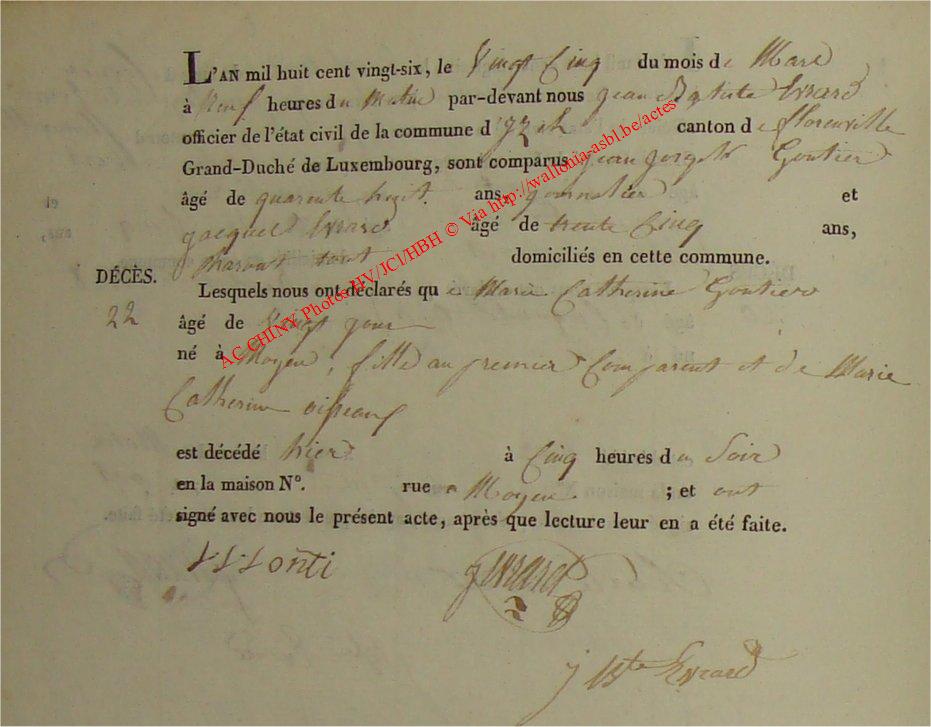 L'AN mil huit cent vingt-six, le Vingt Cinq du mois de Mars
à Neuf heures du Matin par-devant nous jean Bptiste Evrard
officier de l'état civil de la commune d'Izel canton de florenville
Grand-Duché de Luxembourg, sont comparus jean Goutier
âgé de quarente huit ans, journalier et
jacques Evrard âgé de trente Cinq ans,
domiciliés en cette commune.
DÉCÈS.
Lesquels nous ont déclarés que Marie Catherine Goutier
22
âgé de Vingt jour
né à Moyen, fille au premier Comparent et de Marie
Catherine
est décédé hier à Cinq heures du Soir
en la maison N°. rue a Moyen ; et ont
signé avec nous le présent acte, après que lecture leur en a été faite.
jevrard
j Bte Evrard
AC CHINY Photos HV/JCl/HBH © Via http://wallonia-asbl.be/actes